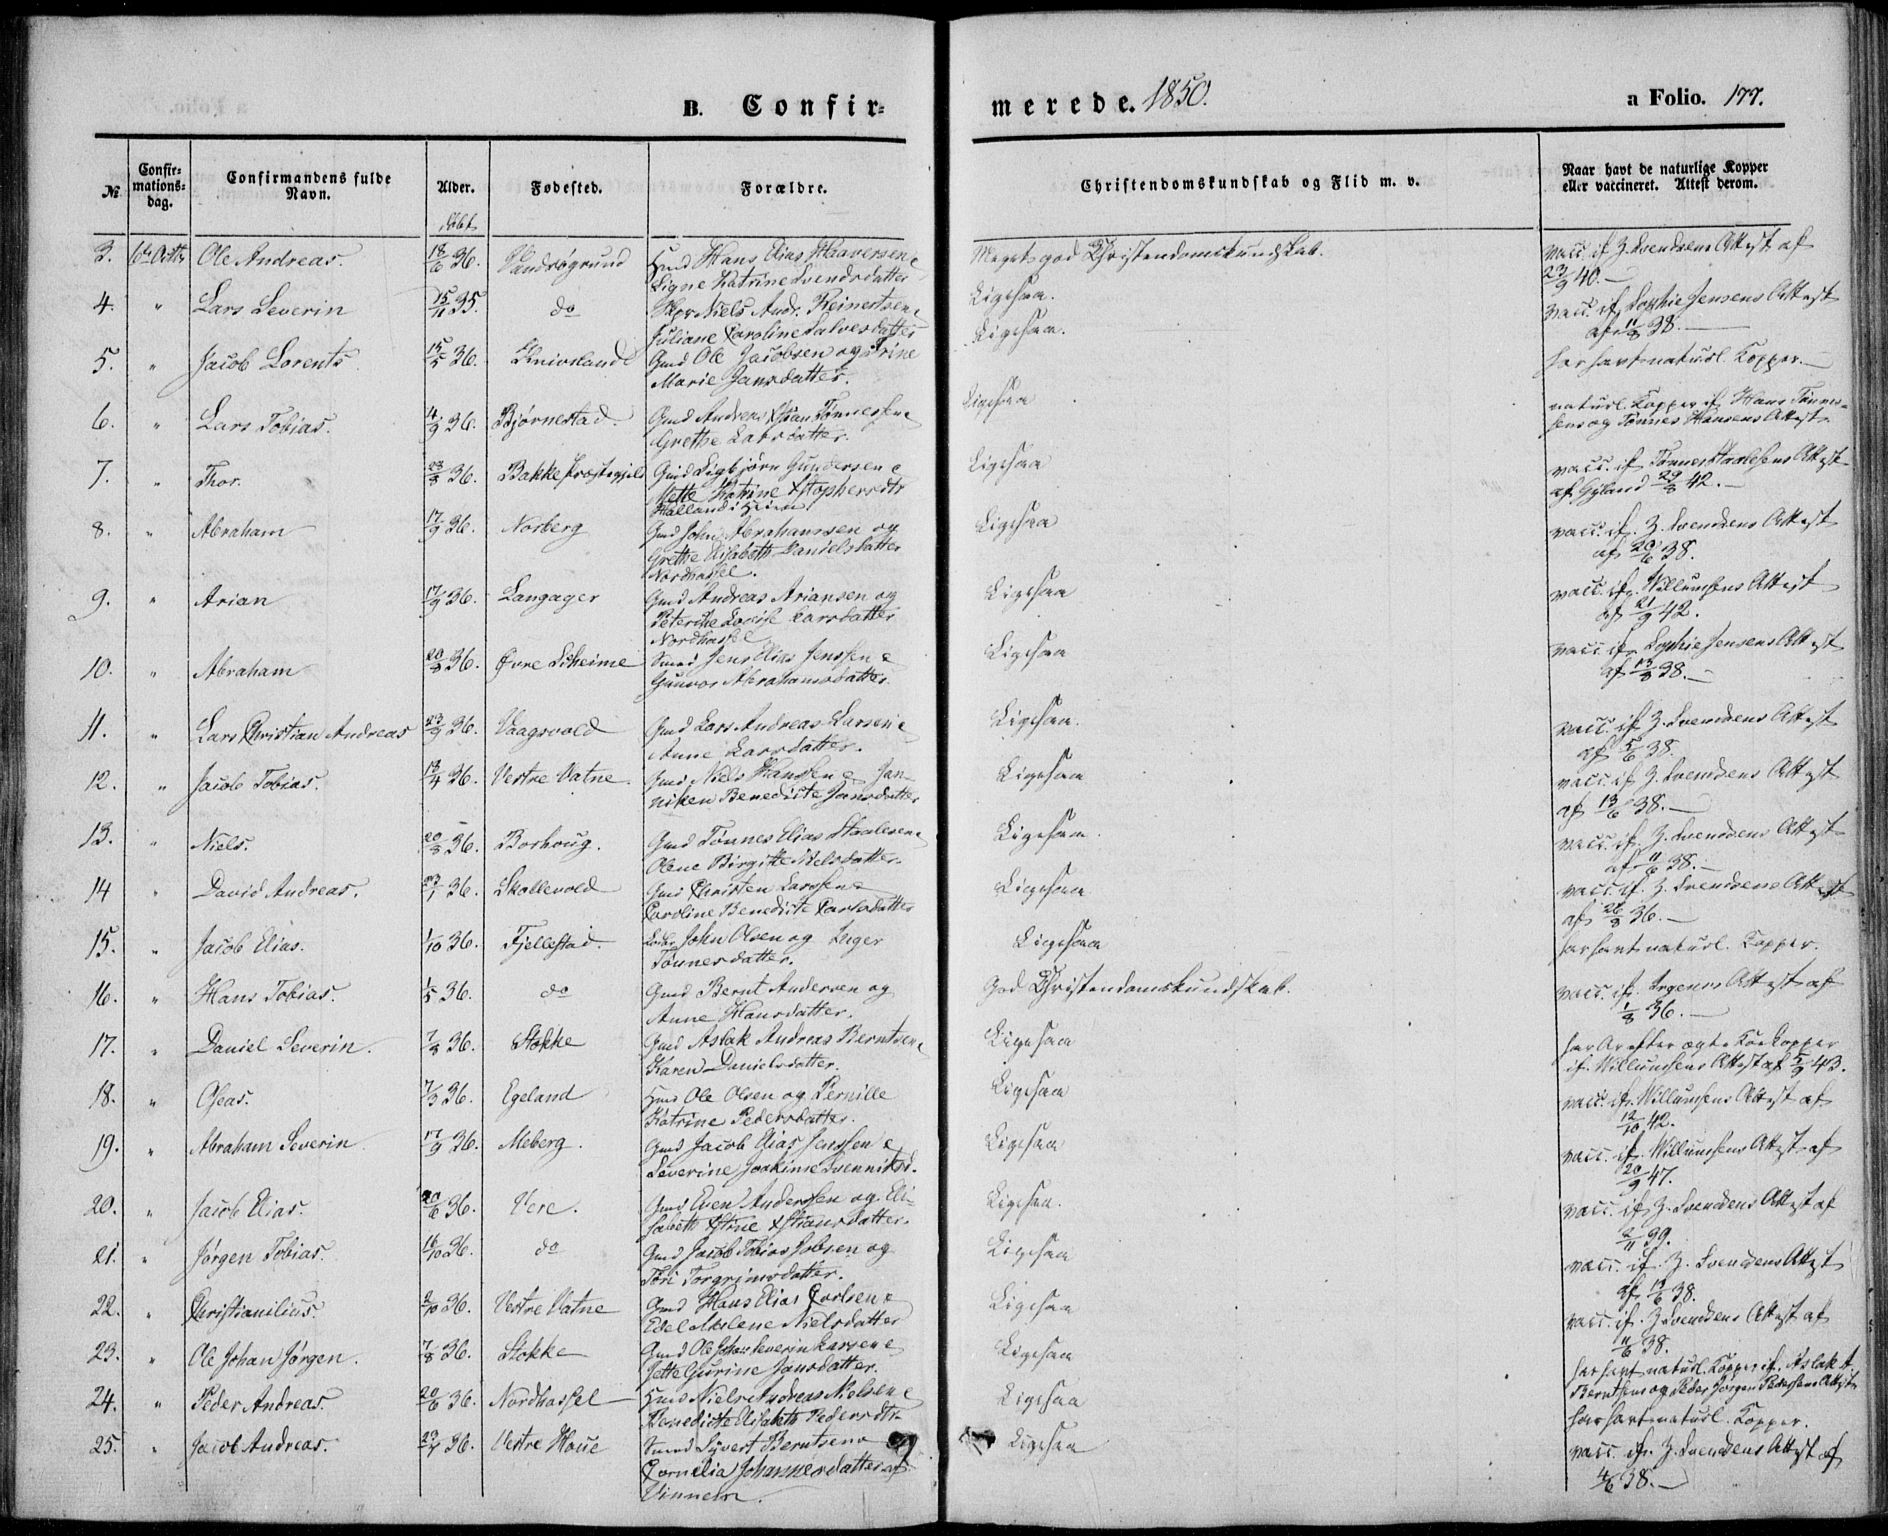 B. Confir=
merede. 1850.
a Folio. 177.
No.
Confir-
mations-
dag.
Confirmandens fulde
Navn.
Alder.
døbt
Fødested.
Forældre.
Christendomskundskab og Flid m. v.
Naar havt de naturlige Kopper
eller vaccineret. Attest derom.
3. 6te Octbr Ole Andreas. 18/6 36. Vandsøgrund Hans Elias Haaversen e Meget god Christendomskundskab. vacc. if Z. Svendsens Attest af
Signe Katrine Svendsdatter 23/9 40.
4. " Lars Severin 15/11 35. do Niels Andr. Reinertsen e Ligesaa. vacc. if. Sophie Jensens Attest
Juliane Caroline Salvesdatter Ligesaa. af 11/8 38.
5. " Jacob Lorents 15/5 36. Knivsland Gmd Ole Jacobsen og Trine har havt naturl. Kopper.
Marie Jansdatter.
6. " Lars Tobias. 4/9 36. Bjørnestad Gmd Andreas Stian Tønnessen e Ligesaa naturl. Kopper if Hans Tønnes-
Grethe Larsdatter. sens og Tønnes Hansens Attest
7. " Thor. 36. Bakke Præstegjeld Gmd Sigbjørn Gundersen e Ligesaa vacc. if Tønnes Staalesens Attest
Mette Katrine Xstophersdtr af Gyland 29/8 42.
Halland i Hæien
8. " Abraham 17/9 36. Norberg Gmd John Abrahamsen og Ligesaa vacc. if. Z. Svendsens Attest
Grethe Elisabeth Danielsdatter af 20/6 38.
Nordhassel.
9. " Arian 17/9 36. Langager Gmd Andreas Ariansen og Ligesaa vacc. if. Willumsens Attest
Peterche Lovise Larsdatter af 21/9 42.
Nordhassel
10. " Abraham 20/3 36. Øvre Skeime Jens Elias Jenssen e Ligesaa vacc. if. Sophie Jensens Attest
Gunvor Abrahamsdatter. af 13/8 38.
11. " Lars Christian Andreas 23/9 36. Vaagsvold Gmd Lars Andreas Larsen e Ligesaa. vacc. if Z. Svendsens Attest
Anne Larsdatter. af 5/6 38.
12. " Jacob Tobias. 18/4 36. Vestre Vatne Gmd Niels Hanssen e Jan- Ligesaa vacc. if Z. Svendsens Attest
niken Benedicte Jansdatter af 13/6 38.
13. " Niels. 20/3 36. Borhoug. Gmd Tønnes Elias Staalesen e Ligesaa. vacc. if. Z. Svendsens Attest
Olene Birgitte Nielsdatter. af 11/6 38.
14 " David Andreas. 36. Skollevold Gmd Christen Larssen e Ligesaa vacc. if. Z. Svendsens Attest
Caroline Benedicte Carlsdatter af 26/8 36.
15. " Jacob Elias. 1/10 36. Fjellestad. John Olsen og Inger Ligesaa har havt naturl. Kopper.
Tønnesdatter.
16. " Hans Tobias. 1/5 36. do Gmd Bernt Andersen og God Christendomskundskab. vacc. if. Attest af
Anne Hansdatter. 1/8 36.
17. " Daniel Severin. 7/3 36. Stokke Gmd Aslak Andreas Berntsen e Ligesaa har Ar efter ægte Koekopper
Karen Danielsdatter. if. Willumsens Attest af 5/9 43.
18. " Oseas. 7/3 36. Egeland Hmd Ole Olsen og Pernille Ligesaa vacc. if. Willumsens Attest af
Katrine Pedersdatter. 12/10 42.
19. " Abraham Severin 17/9 36. Meberg. Gmd Jacob Elias Jenssen e Ligesaa vacc. if. Willumsens Attest af
Severine Joakime Svennikd. 20/9 47.
20. " Jacob Elias. 20/6 36. Vere. Gmd Even Anderssen og Eli- Ligesaa. vacc. if Z. Svendsens Attest af
sabeth Stine Xstiansdatter. 2/11 39.
21. " Jørgen Tobias. 16/10 36. do Gmd Jacob Tobias Jobsen og Ligesaa vacc. if. Z. Svendsens Attest
Tori Torgrimsdatter. af 13/6 38.
22. " Christianilius. 2/10 36. Vestre Vatne Gmd Hans Elias Carlsen e Ligesaa vacc. if. Z. Svendsens Attest af
Edel Malene Nielsdatter 11/6 38.
23. " Ole Johan Jørgen. 7/8 36. Stokke Gmd Ole Johan Severin Larssen e Ligesaa har havt naturl. Kopper if. Aslak A.
Jette Gurine Jansdatter. Berntsens og Peder Jørgen Pedersens Attest
24. " Peder Andreas. 20/6 36. Nordhassel Hmd Niels Andreas Nielsen e Ligesaa har havt naturl. Kopper.
Benedicte Elisabeth Pedersdtr.
25. " Jacob Andreas. 36. Vestre Haue Syvert Berntsen Ligesaa vacc. if. Z. Svendsens Attest af
Cornelia Johannesdatter af 4/6 38.
Vinnem.